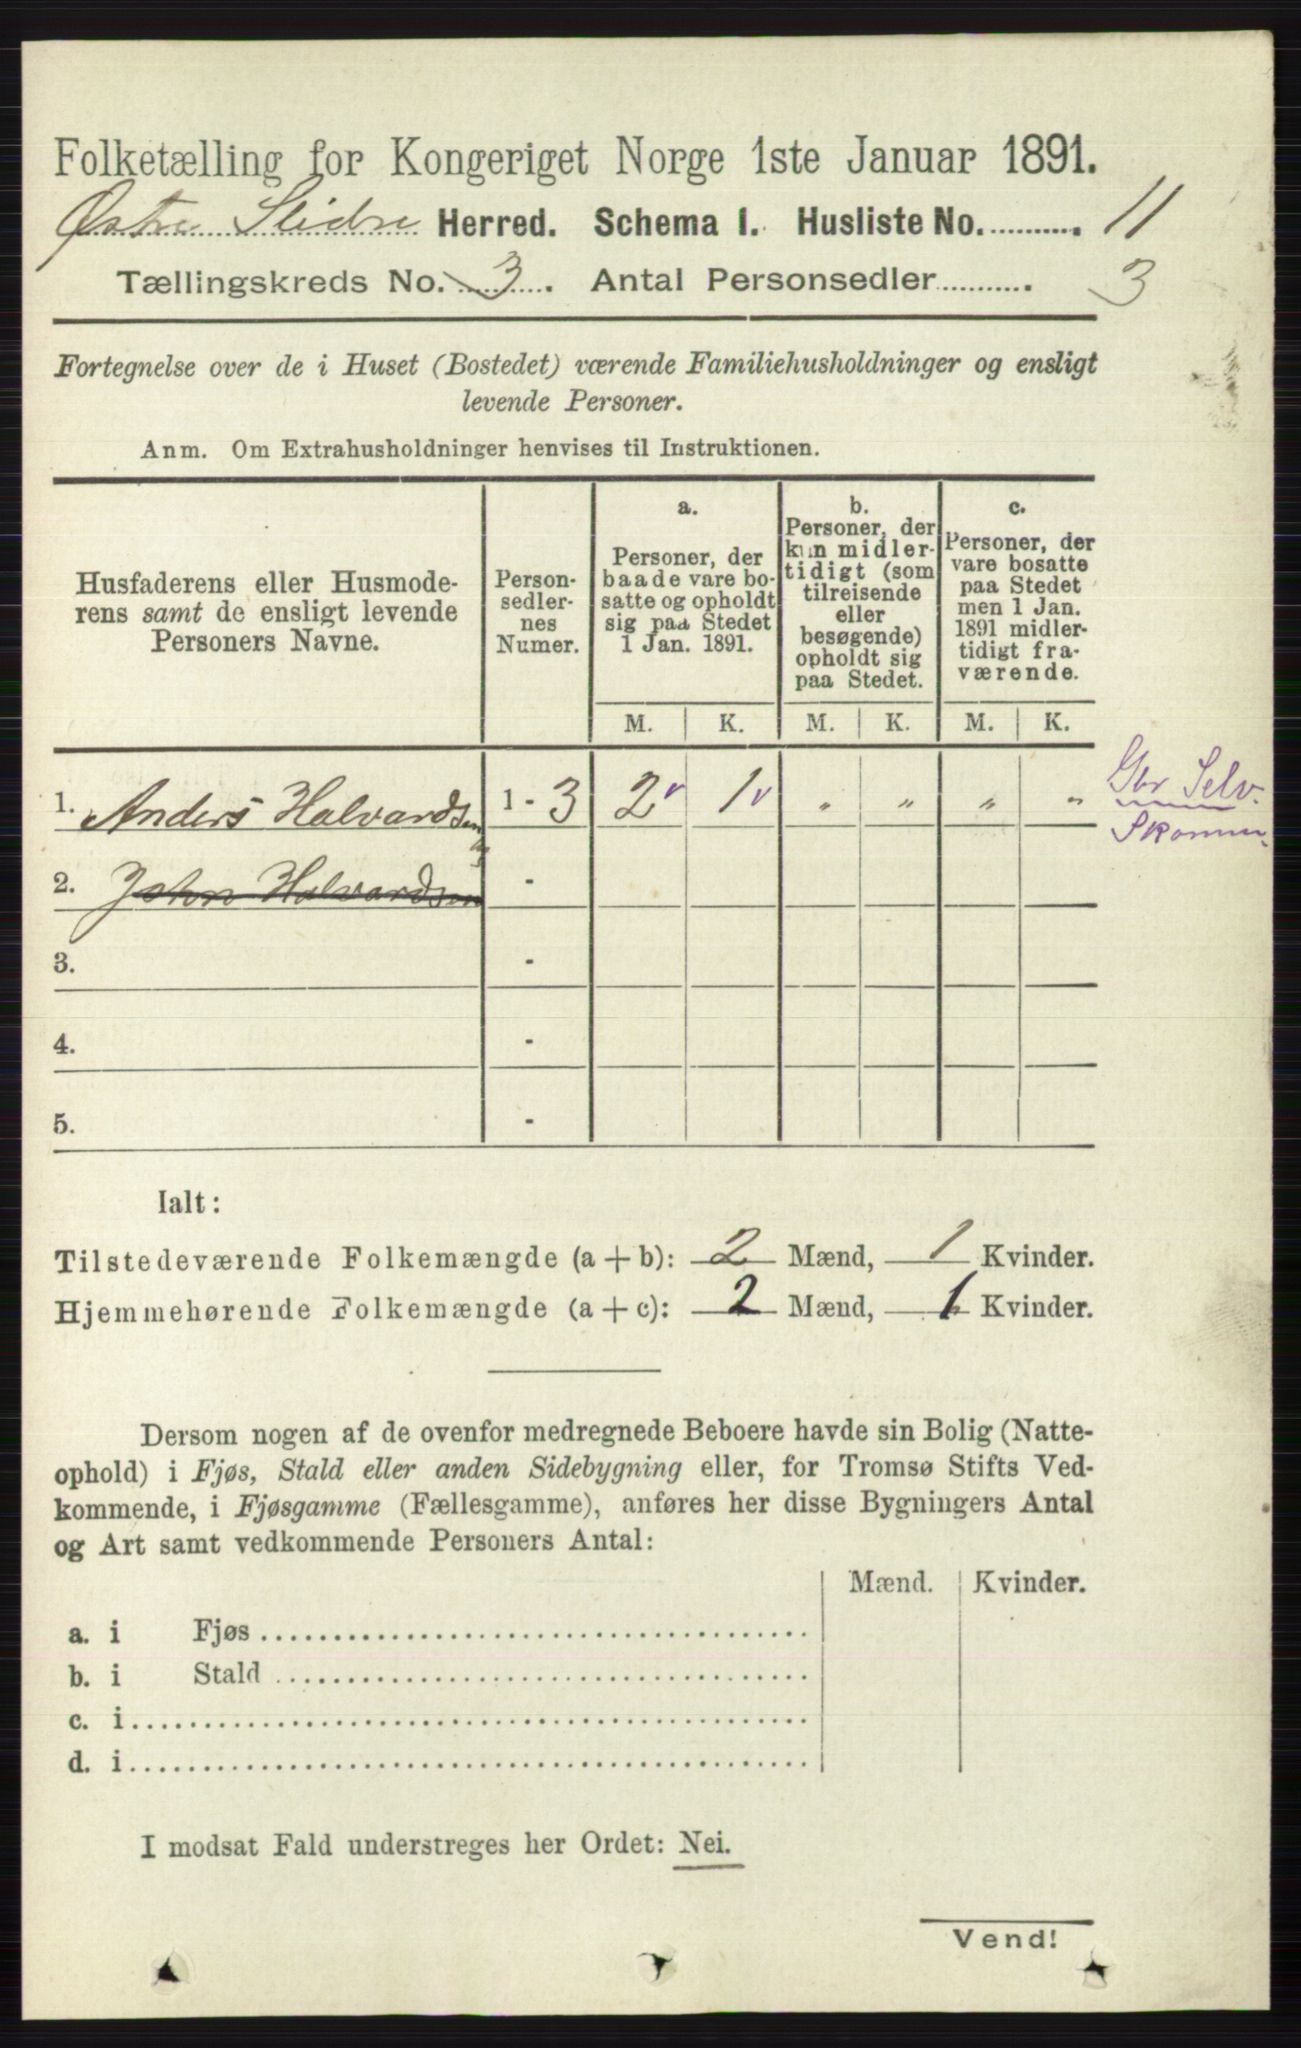 Folketælling for Kongeriget Norge 1ste Januar 1891.
Østre Slidre Herred. Schema I. Husliste No. 11
Tællingskreds No. 3. Antal Personsedler 3
Fortegnelse over de i Huset (Bostedet) værende Familiehusholdninger og ensligt
levende Personer.
Anm. Om Extrahusholdninger henvises til Instruktionen.
Husfaderens eller Husmode-
rens samt de ensligt levende
Personers Navne.
Person-
sedler-
nes
Numer.
a.
Personer, der
baade vare bo-
satte og opholdt
sig paa Stedet
1 Jan. 1891.
b.
Personer, der
kun midler-
tidigt (som
tilreisende
eller
besøgende)
opholdt sig
paa Stedet.
c.
Personer, der
vare bosatte
paa Stedet
men 1 Jan.
1891 midler-
tidigt fra-
værende.
M. K. M. K. M. K.
1. Anders Halvardsen 1 - 3 2 1 " " " "
Gbr Selv.
2. John Halvardsen -
3. -
4. -
5. -
Ialt:
Tilstedeværende Folkemængde (a + b): 2 Mænd, 1 Kvinder.
Hjemmehørende Folkemængde (a + c): 2 Mænd, 1 Kvinder.
Dersom nogen af de ovenfor medregnede Beboere havde sin Bolig (Natte-
ophold) i Fjøs, Stald eller anden Sidebygning eller, for Tromsø Stifts Ved-
kommende, i Fjøsgamme (Fællesgamme), anføres her disse Bygningers Antal
og Art samt vedkommende Personers Antal:
Mænd. Kvinder.
a. i Fjøs
b. i Stald
c. i
d. i
I modsat Fald understreges her Ordet: Nei.
Vend!